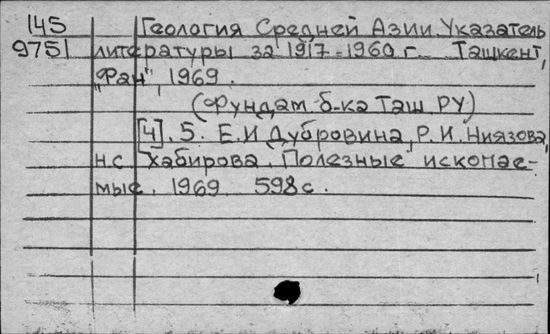 145 Геология Средней Азии. Указатель
9751 литературы за 1917-1960 г. Ташкент,
"Фан", 1969.
(Фундам б-ка Таш РУ)
[Ч]. 5. Е.И Дубровина, Р.И. Ниязова,
Н.С Хабирова. Полезные ископае-
мые. 1969 598 с.